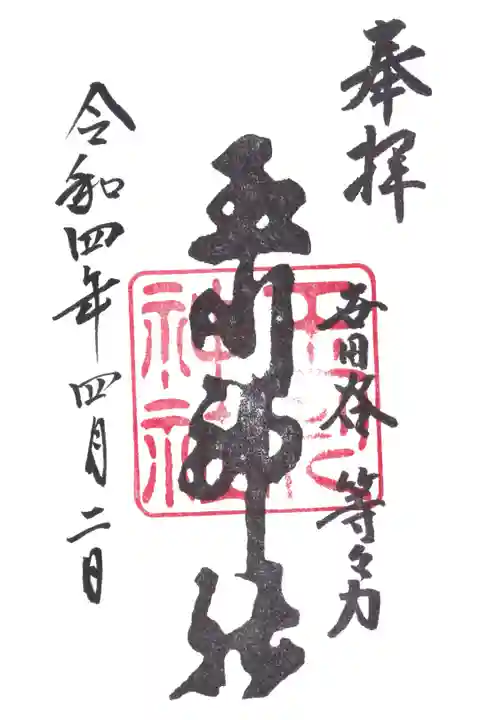 奉拝
世田谷 等々力
玉川神社
令和四年 四月 二日